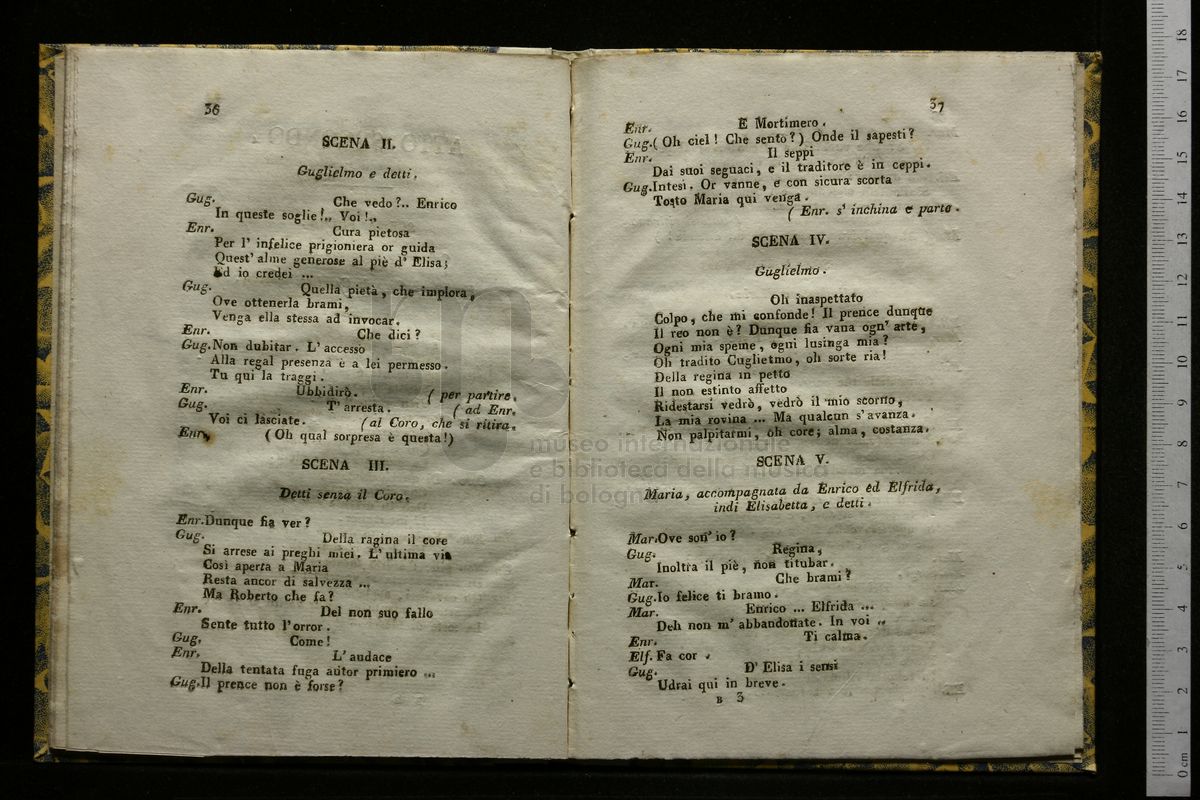 36
SCENA II.
Guglielmo e detti.
Gug. Che vedo?.. Enrico
In queste soglie!.. Voi!..
Enr. Cura pietosa
Per l' infelice prigioniera or guida
Quest' alme generose al piè d' Elisa;
Ed io credei ...
Gug. Quella pietà, che implora,
Ove ottenerla brami,
Venga ella stessa ad invocar.
Enr. Che dici?
Gug. Non dubitar. L' accesso
Alla regal presenza è a lei permesso.
Tu qui la traggi.
Enr. Ubbidirò. (per partire.
Gug. T' arresta. (ad Enr.
Voi ci lasciate. (al Coro, che si ritira.
Enr. (Oh qual sorpresa è questa!)
SCENA III.
Detti senza il Coro.
Enr. Dunque fia ver?
Gug. Della ragina il core
Si arrese ai preghi miei. L' ultima via
Così aperta a Maria
Resta ancor di salvezza ...
Ma Roberto che fa?
Enr. Del non suo fallo
Sente tutto l' orror.
Gug. Come!
Enr. L' audace
Della tentata fuga autor primiero ...
Gug. Il prence non è forse?
37
Enr. E Mortimero.
Gug. (Oh ciel! Che sento?) Onde il sapesti?
Enr. Il seppi
Dai suoi seguaci, e il traditore è in ceppi.
Gug. Intesi. Or vanne, e con sicura scorta
Tosto Maria qui venga.
(Enr. s' inchina e parte.
SCENA IV.
Guglielmo.
Oh inaspettato
Colpo, che mi confonde! Il prence dunque
Il reo non è? Dunque fia vana ogn' arte,
Ogni mia speme, ogni lusinga mia?
Oh tradito Guglielmo, oh sorte ria!
Della regina in petto
Il non estinto affetto
Ridestarsi vedrò, vedrò il mio scorno,
La mia rovina ... Ma qualcun s' avanza.
Non palpitarmi, oh core; alma, costanza.
SCENA V.
Maria, accompagnata da Enrico ed Elfrida,
indi Elisabetta, e detti.
Mar. Ove son' io?
Gug. Regina,
Inoltra il piè, non titubar.
Mar. Che brami?
Gug. Io felice ti bramo.
Mar. Enrico ... Elfrida ...
Deh non m' abbandonate. In voi ..
Enr. Ti calma.
Elf. Fa cor.
Gug. D' Elisa i sensi
Udrai qui in breve.
B 3
museo internazionale
e biblioteca della musica
di bologna
0 cm 1 2 3 4 5 6 7 8 9 10 11 12 13 14 15 16 17 18